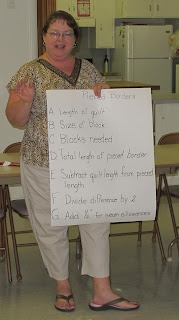 Pieced Borders
A. Length of quilt
B. Size of block
C. Blocks needed
D. Total length of pieced border
E. Subtract quilt length from pieced
length
F. Divide difference by 2
G. Add ½" for seam allowance